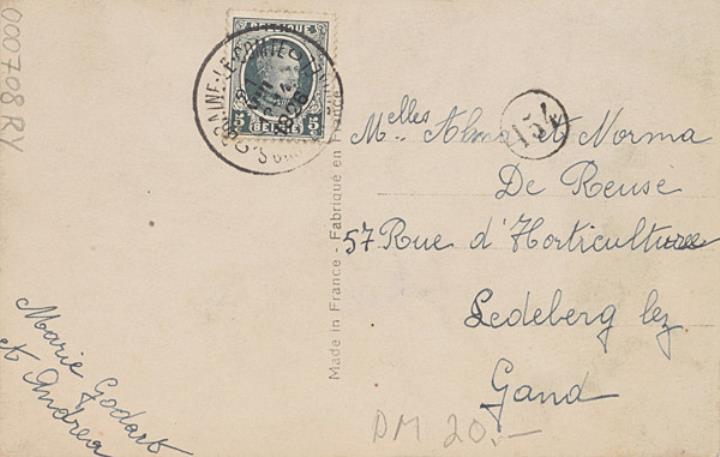 000708RY
BELGIQUE
5 5
CENT.
BRAINE-LE-COMTE
1926
154
Melles Alma et Norma
De Reuse
57 Rue d'Horticulture
Ledeberg lez
Gand
Made in France - Fabriqué en France
Marie Godart
et Andrea
DM 20.-